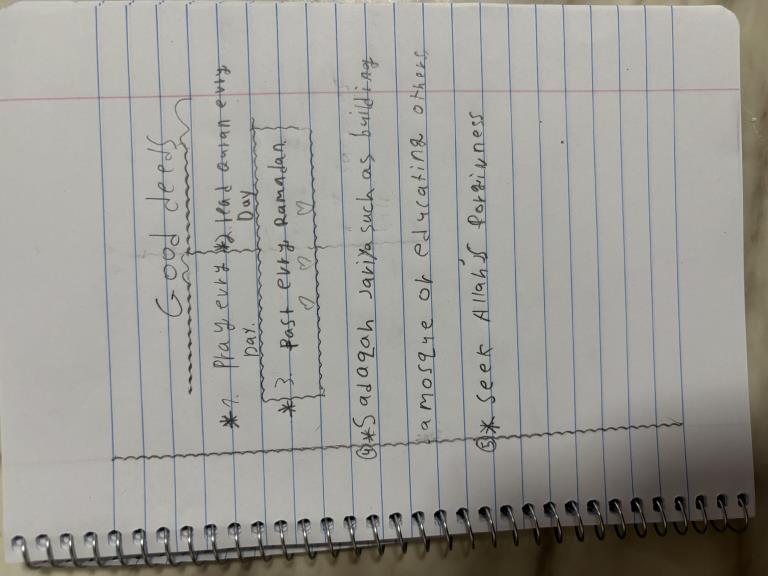 Good deeds
*1. Pray evry Day.
*2. read quran evry Day
*3. Fast evry Ramadan
♡ ♡ ♡
④*Sadaqah Jariya such as building
a mosque or educating others,
⑤* Seek Allah's forgivness